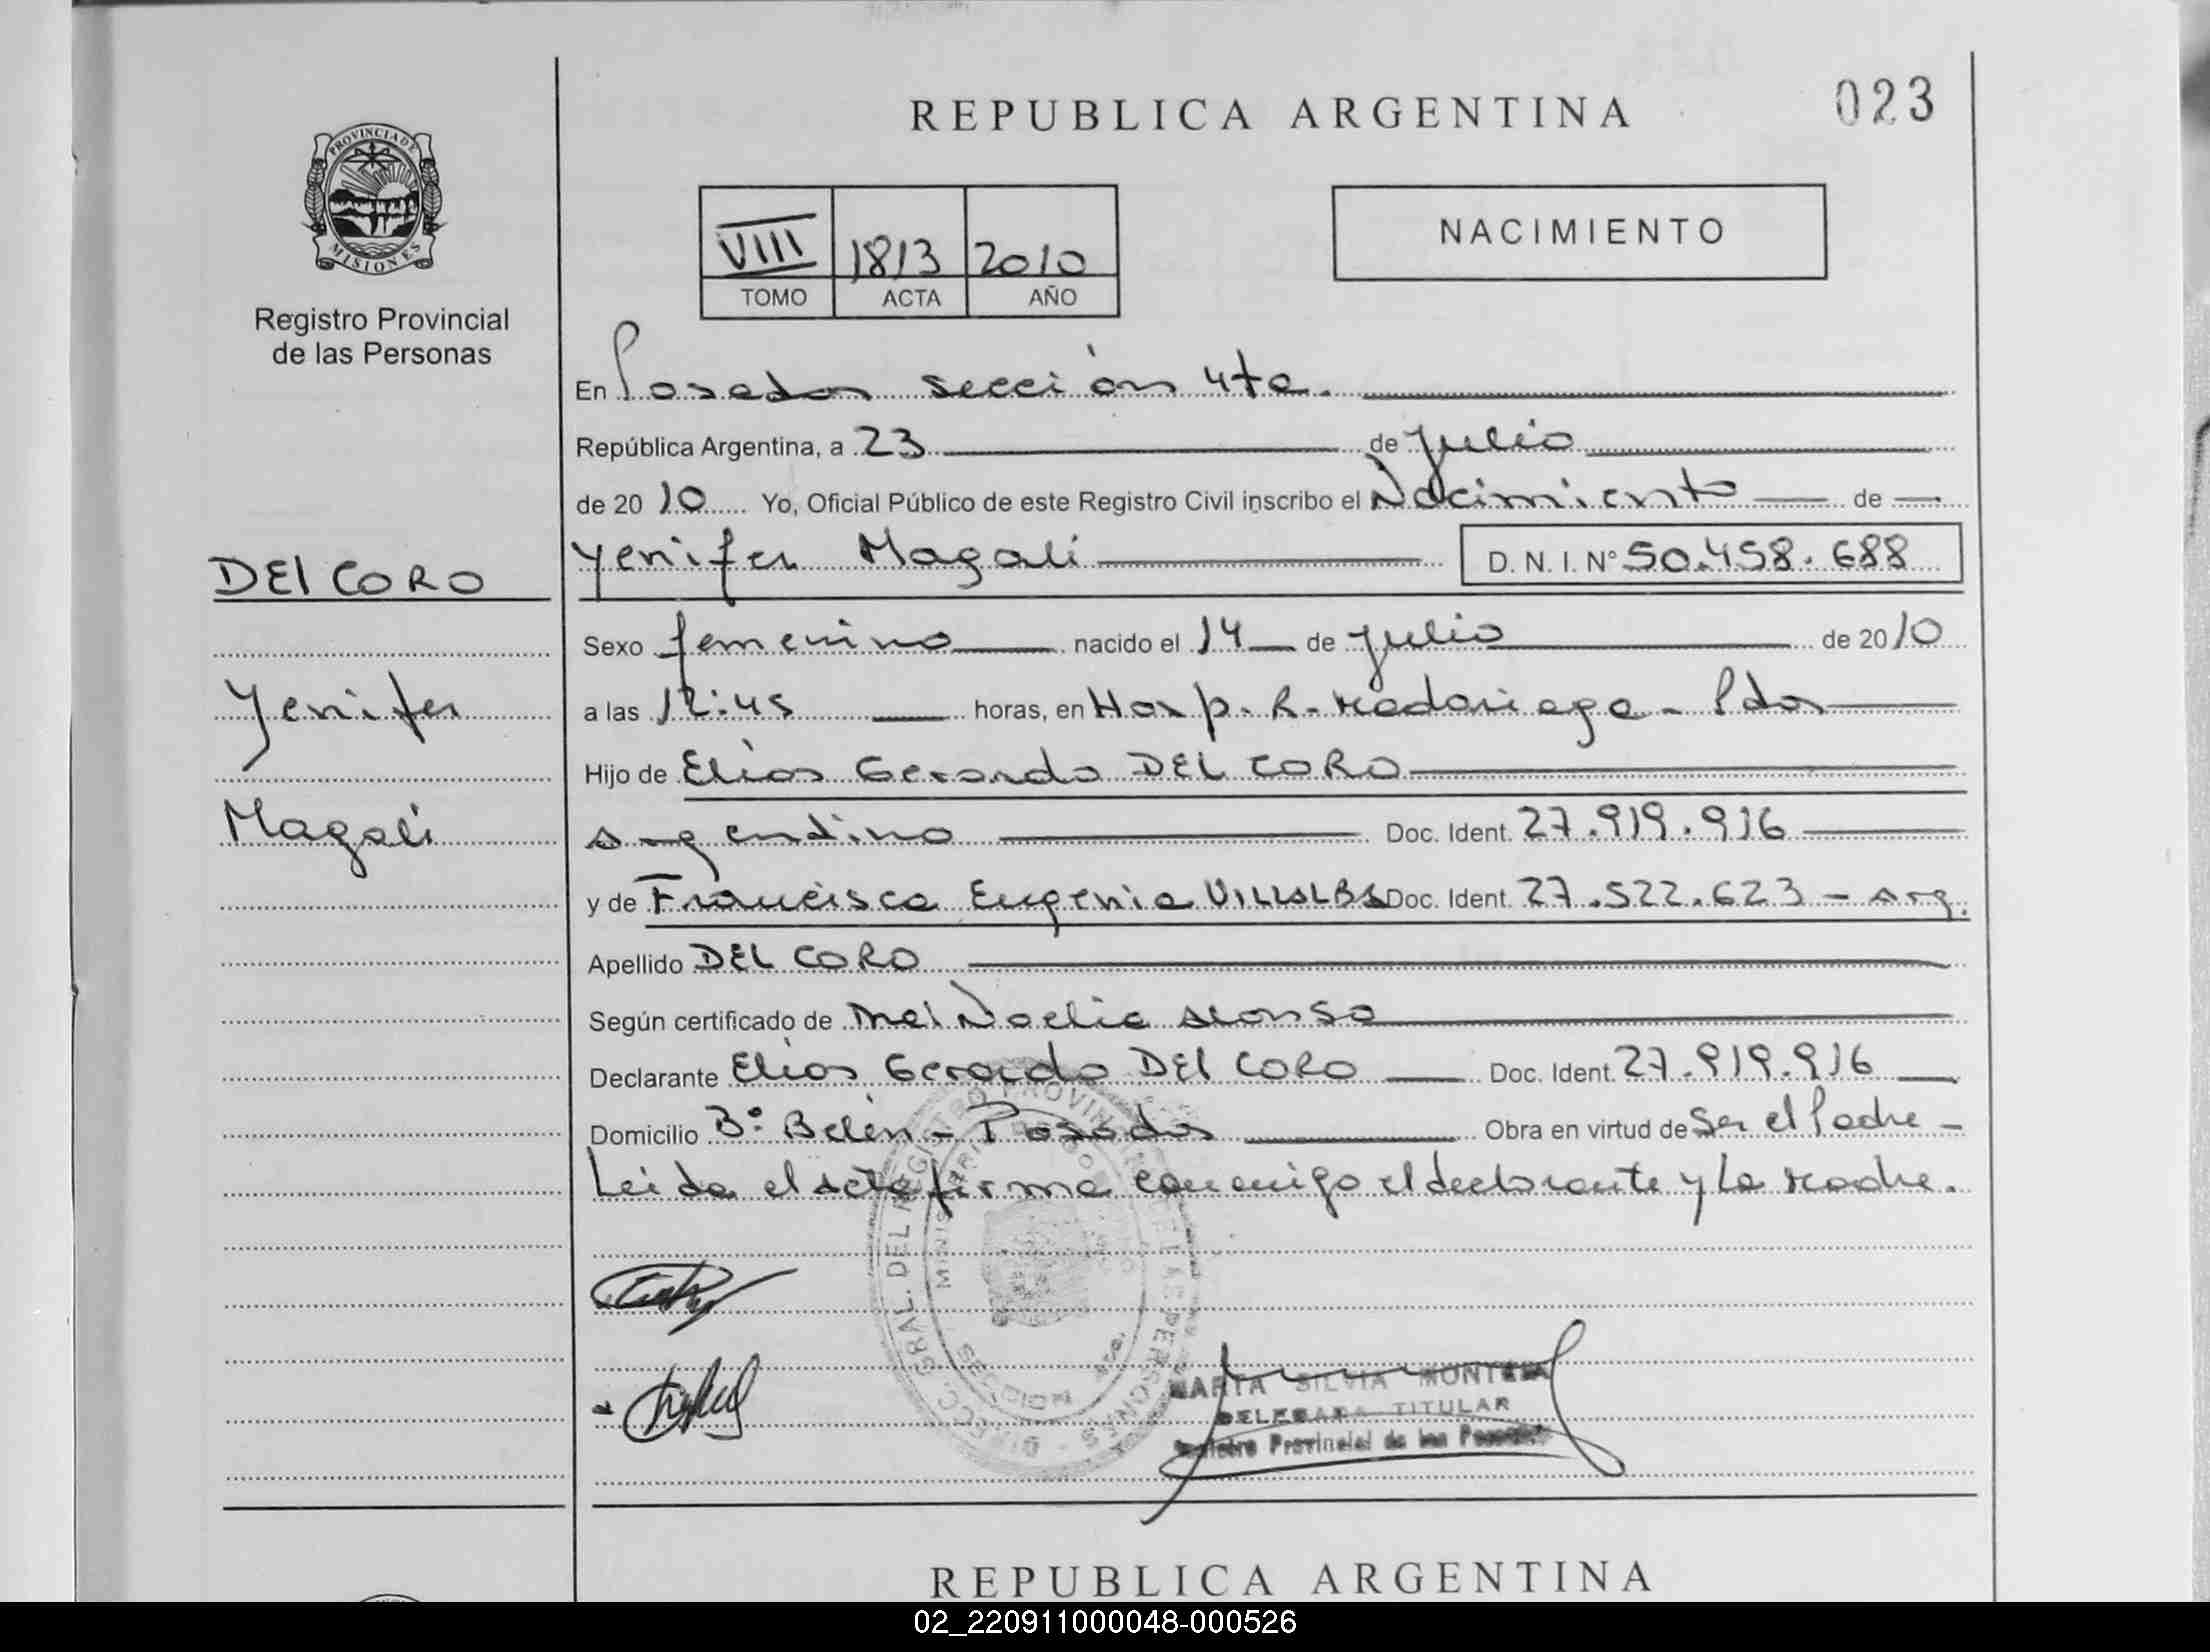 REPUBLICA ARGENTINA
023
PROVINCIA DE
MISIONES
Registro Provincial
de las Personas
VIII 1813 2010
TOMO ACTA AÑO
NACIMIENTO
En Posadas sección 4ta.
República Argentina, a 23 de Julio
de 2010 Yo, Oficial Público de este Registro Civil inscribo el Nacimiento de
DEL CORO
Yenifer Magali D. N. I. Nº 50.458.688
Sexo femenino nacido el 14 de Julio de 2010
Yenifer
a las 12:45 horas, en Hosp. R. Madariaga - Pdas
Hijo de Elias Gerardo DEL CORO
Magali
Argentino Doc. Ident. 27.919.916
y de Francisca Eugenia VILLALBA Doc. Ident. 27.522.623 - Arg.
Apellido DEL CORO
Según certificado de Noelia Alonso
Declarante Elias Gerardo DEL CORO Doc. Ident. 27.919.916
Domicilio Bº Belén - Posadas Obra en virtud de Ser el Padre -
Leida el acta firma conmigo el declarante y la Madre.
DIRECC. GRAL. DEL REGISTRO PROVINCIAL DE LAS PERSONAS
MISIONES
MARIA SILVIA
DELEGADA TITULAR
Registro Provincial de las Personas
REPUBLICA ARGENTINA
02_220911000048-000526